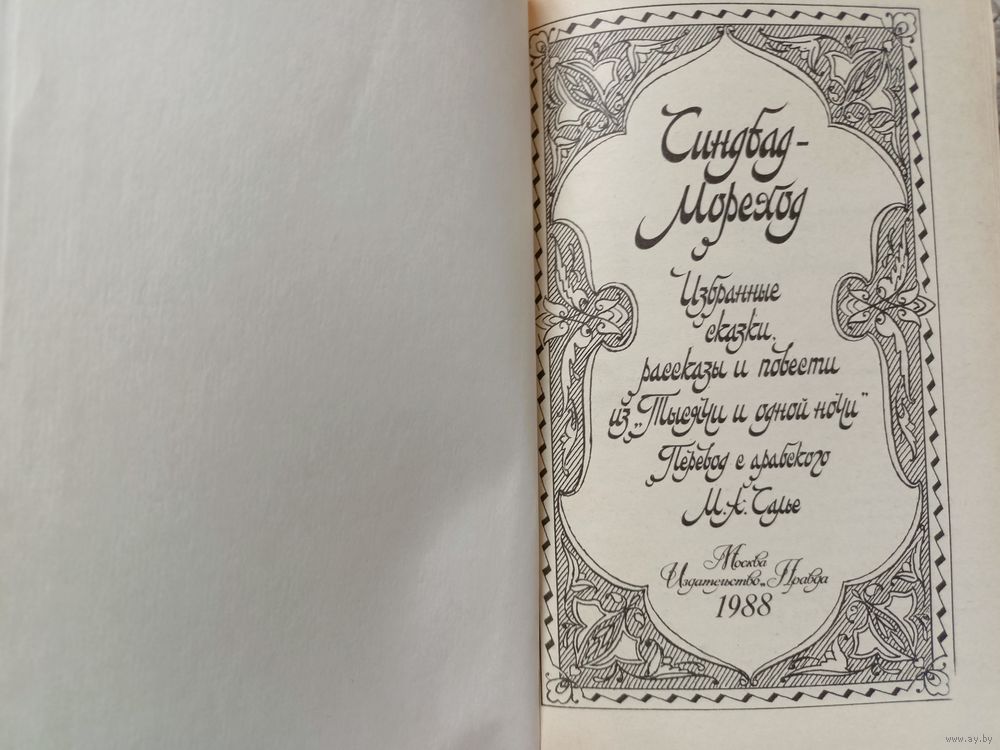 Синдбад-
Мореход
Избранные
сказки,
рассказы и повести
из „Тысячи и одной ночи"
Перевод с арабского
М. А. Салье
Москва
Издательство „Правда
1988
www.ay.by